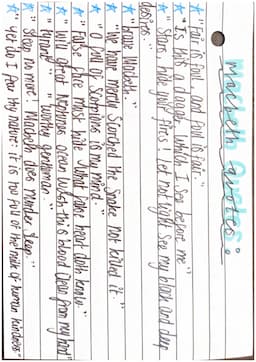 Macbeth Quotes:
"Fair is foul, and foul is fair."
"Is this a dagger which I see before me"
"Stars, hide your fires! Let not light see my black and deep
desires."
"Brave Macbeth"
"We have merely scorched the snake not killed it."
"O full of scorpions is my mind"
"False face must hide what false heart doth know."
"Will great Neptunes ocean wash this blood clean from my hand"
"tyrant" "worthy gentleman"
"Sleep no more! Macbeth does murder sleep."
"Yet do I fear thy nature: it is too full of the milk of human kindness"